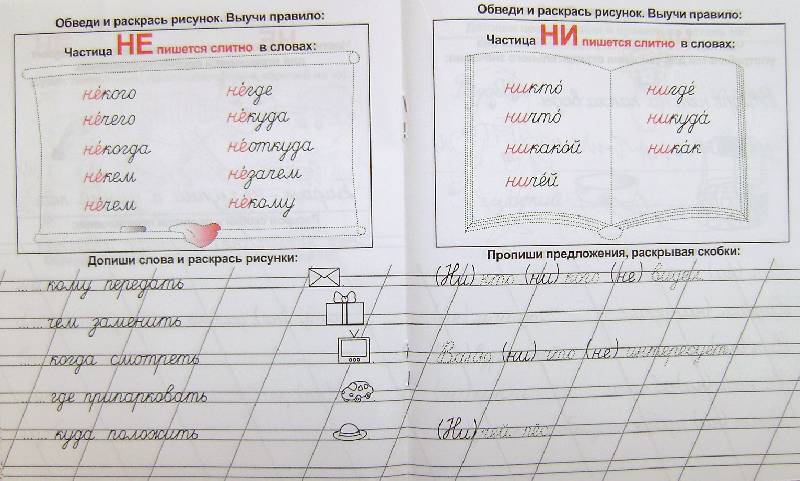 Обведи и раскрась рисунок. Выучи правило:
Частица НЕ пишется слитно в словах:
не́кого не́где
не́чего не́куда
не́когда не́откуда
не́кем не́зачем
не́чем не́кому
Допиши слова и раскрась рисунки:
...... кому передать
...... чем заменить
...... когда смотреть
...... где припарковать
...... куда положить
Обведи и раскрась рисунок. Выучи правило:
Частица НИ пишется слитно в словах:
никто́ нигде́
ничто́ никуда́
никако́й ника́к
ниче́й
Пропиши предложения, раскрывая скобки:
(Ни) кто (ни) кого (не) видел.
Ваню (ни) что (не) интересует.
(Ни) чей пёс.